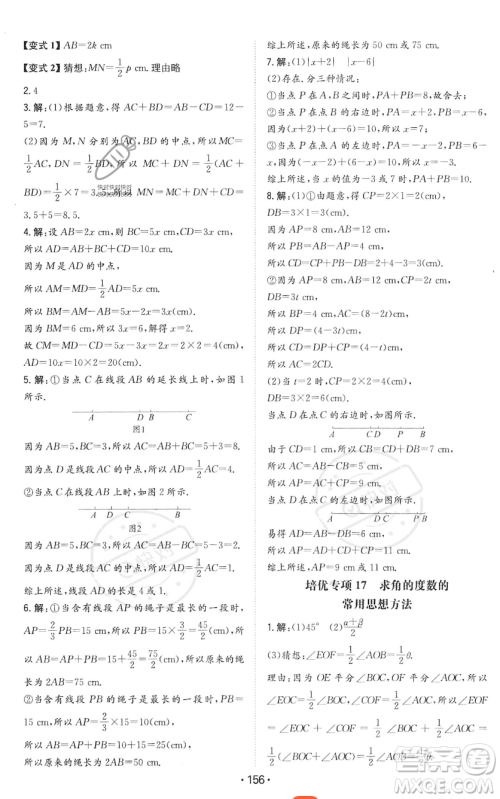 【变式 1】AB=2k cm
【变式 2】猜想:MN=1/2 p cm. 理由略
2. 4
3. 解:(1)根据题意,得 AC+BD=AB-CD=12
-5=7.
(2)因为 M,N 分别为 AC,BD 的中点,所以 MC=
1/2 AC,DN=1/2 BD,所以 MC+DN=1/2(AC+
BD)=1/2×7=3.5,所以 MN=MC+DN+CD=
3.5+5=8.5.
4. 解:设 AB=2x cm,则 BC=5x cm,CD=3x cm,
所以 AD=AB+BC+CD=10x cm.
因为 M是 AD 的中点,
所以 AM=MD=1/2 AD=5x cm,
所以 BM=AM-AB=5x-2x=3x(cm).
因为 BM=6 cm,所以 3x=6,解得 x=2.
故 CM=MD-CD=5x-3x=2x=2×2=4(cm),
AD=10x=10×2=20(cm).
5. 解:①当点 C 在线段 AB 的延长线上时,如图 1
所示.
A D B C
图1
因为 AB=5,BC=3,所以 AC=AB+BC=5+3=8.
因为点 D 是线段 AC 的中点,所以 AD=1/2 AC=4.
②当点 C 在线段 AB 上时,如图 2 所示.
A D C B
图2
因为 AB=5,BC=3,所以 AC=AB-BC=5-3=2.
因为点 D 是线段 AC 的中点,所以 AD=1/2 AC=1.
综上所述,线段 AD 的长为 4 或 1.
6. 解:①当含有线段 AP 的绳子是最长的一段时,
AP=2/3 PB=15 cm,所以 PB=15÷2/3=45/2(cm),
所以 AB=AP+PB=15+45/2=75/2(cm),
所以原来的绳长为 2×75/2=75(cm).
②当含有线段 BP 的绳子是最长的一段时,
AP=2/3 PB=2/3×15=10(cm),
所以 AB=AP+PB=10+15=25(cm),
所以原来的绳长为 2×25=50(cm).
综上所述,原来的绳长为 50 cm 或 75 cm.
7. 解:(1)|x+2| |x-6|
(2)存在. 分三种情况:
①当点 P 在点 B 的右边时,PA=x+2,PB=x-6,
所以(x+2)+(x-6)=10,解得 x=7;
②当点 P 在点 A,B 之间时,PA=x+2,PB=6-x,
所以(x+2)+(6-x)=8≠10,不符合题意;
③当点 P 在点 A 的左边时,PA=-x-2,PB=6-x,
所以(-x-2)+(6-x)=10,解得 x=-3.
综上所述,当 x 的值为-3 或 7 时,PA+PB=10.
8. 解:(1)①由题意,得 CP=2×1=2(cm),
DB=3×1=3(cm).
因为 AP=8 cm,AB=12 cm,
所以 PB=AB-AP=4 cm,
所以 CD=CP+PB-DB=2+4-3=3(cm).
②因为 AP=8 cm,AB=12 cm,CP=2t cm,
DB=3t cm,
所以 BP=4 cm,AC=(8-2t)cm,
所以 DP=(4-3t)cm,
所以 CD=DP+CP=4-3t+2t=(4-t)cm,
所以 AC=2CD.
(2)当 t=2 时,CP=2×2=4(cm),
DB=3×2=6(cm).
当点 D 在点 C 的右边时,如图所示.
A C D P B
由于 CD=1 cm,所以 CB=CD+DB=7 cm,
所以 AC=AB-CB=5 cm,
所以 AP=AC+CP=9 cm.
当点 D 在点 C 的左边时,如图所示.
A D C P B
易得 AD=AB-DB=6 cm,
所以 AP=AD+CD+CP=11 cm.
综上所述,AP=9 cm 或 11 cm.
培优专项 17 求角的度数的
常用思想方法
1. 解:(1)45° (2)(α+β)/2
(3)猜想:∠EOF=1/2∠AOB=1/2θ.
理由:因为 OE 平分∠BOC,OF 平分∠AOC,所
以∠EOC=1/2∠BOC,∠COF=1/2∠AOC,所以
∠EOF=∠EOC+∠COF=1/2∠BOC+
1/2∠AOC=1/2(∠BOC+∠AOC)=1/2∠AOB=1/2θ.
·156·